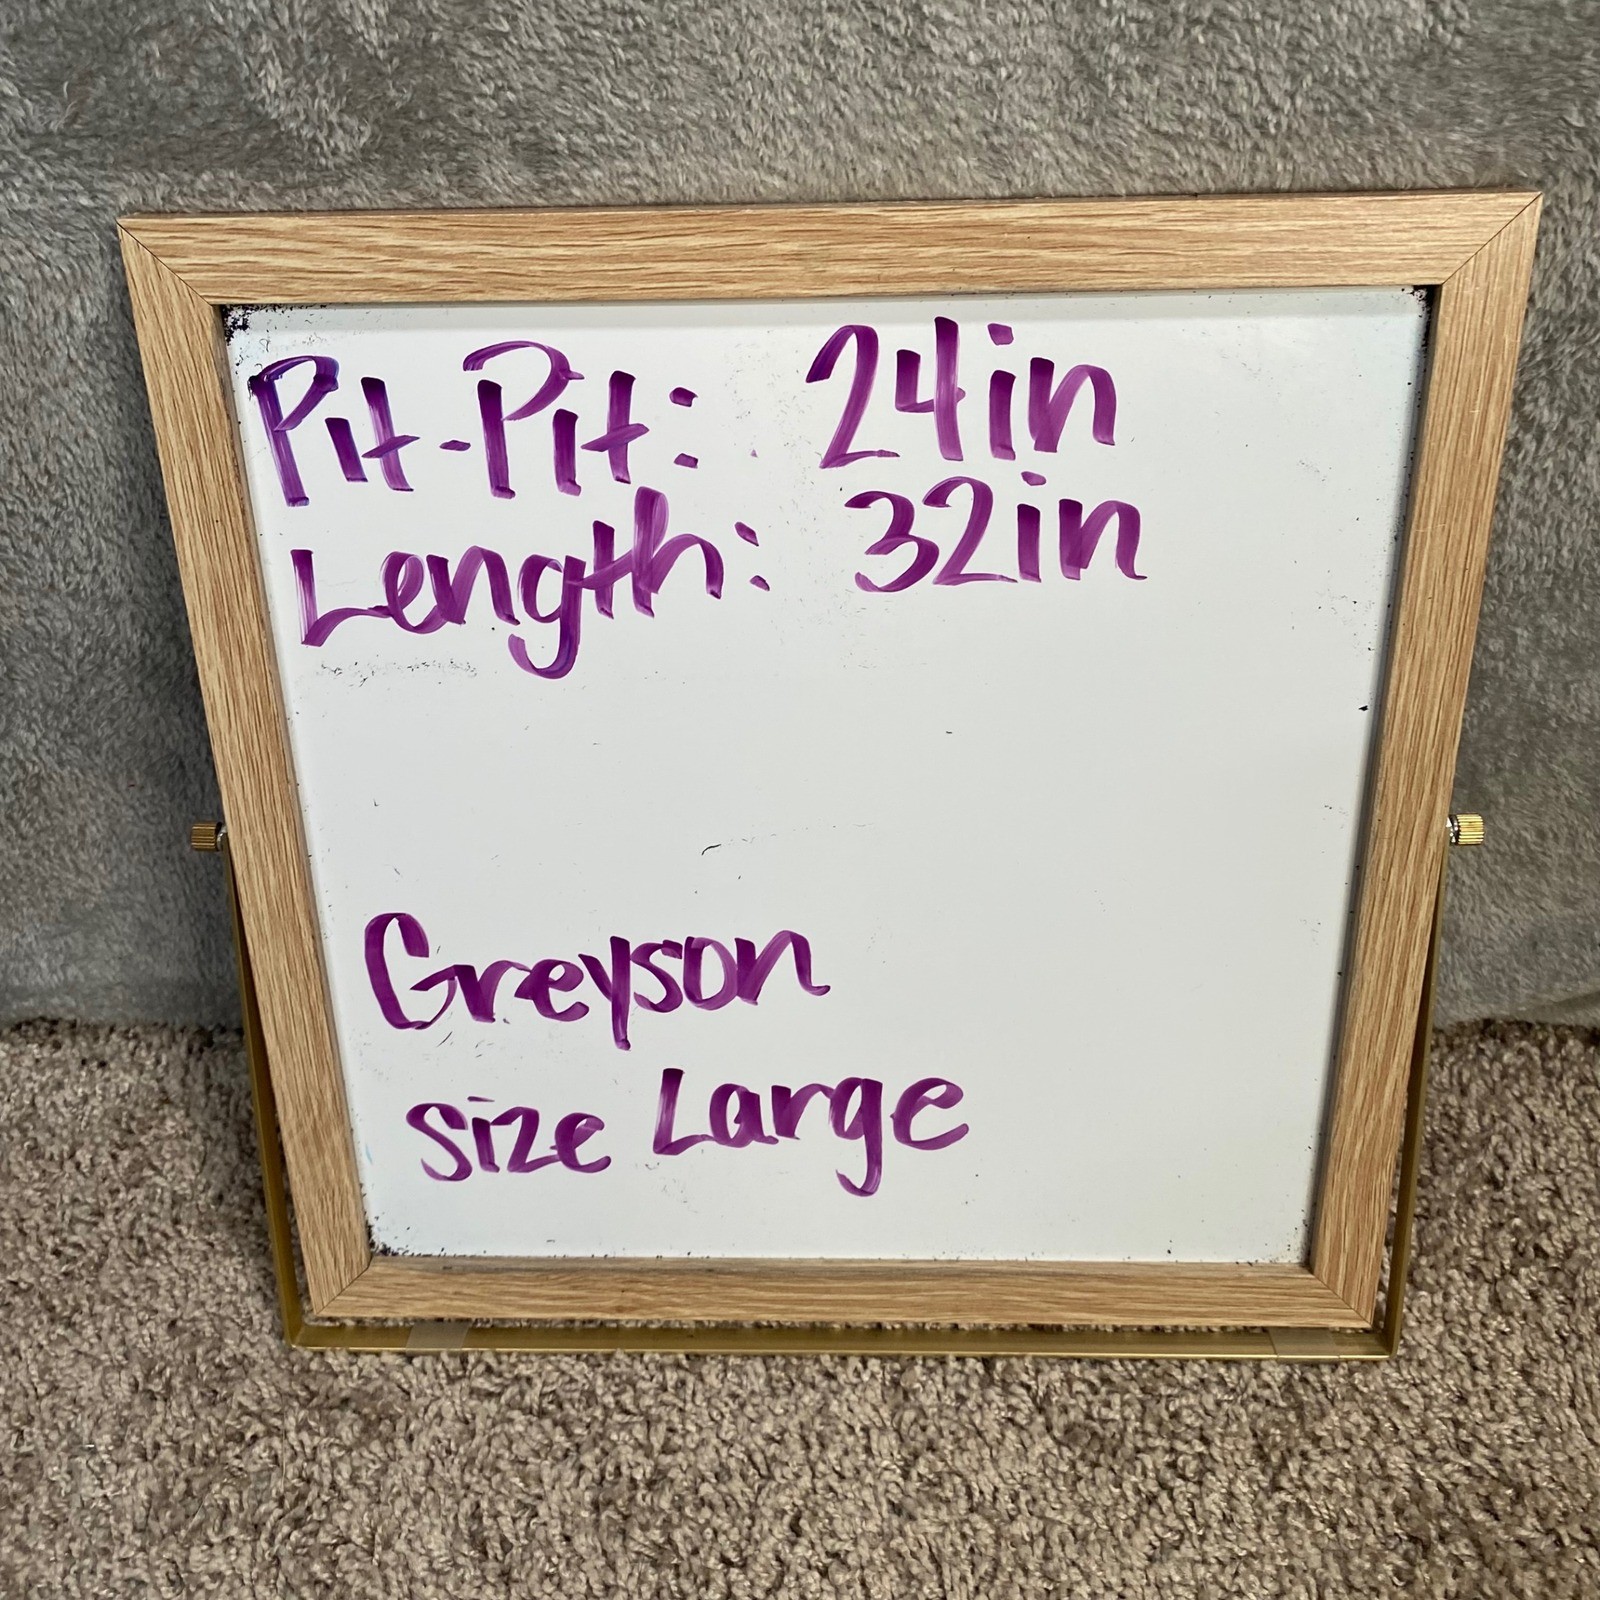 Pit-Pit: 24in
Length: 32in
Greyson
Size Large